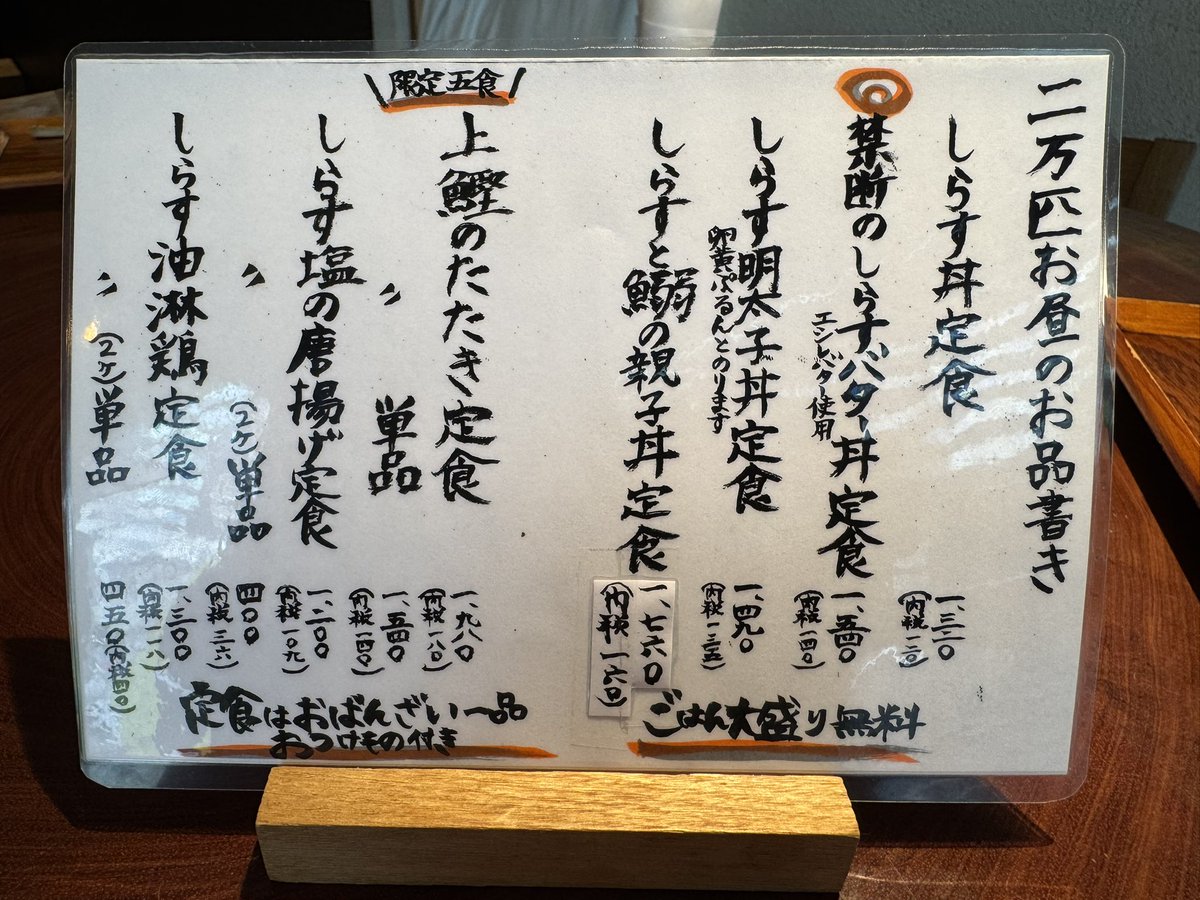 二万匹お昼のお品書き
しらす丼定食 一、三二〇
(内税一二〇)
禁断のしらすバター丼定食 一、五四〇
エシレバター使用 (内税一四〇)
しらす明太子丼定食 一、四九〇
卵黄ぷるんとのります (内税一三五)
しらすと鰯の親子丼定食 一、七六〇
(内税一六〇)
ごはん大盛り無料
限定五食
上鰹のたたき定食 一、九八〇
(内税一八〇)
〃 単品 一、五四〇
(内税一四〇)
しらす塩の唐揚げ定食 一、二〇〇
(内税一〇九)
〃 (2ケ)単品 四〇〇
(内税三六)
しらす油淋鶏定食 一、三〇〇
(内税一一八)
〃 (2ケ)単品 四五〇(内税四〇)
定食はおばんざい一品
おつけもの付き